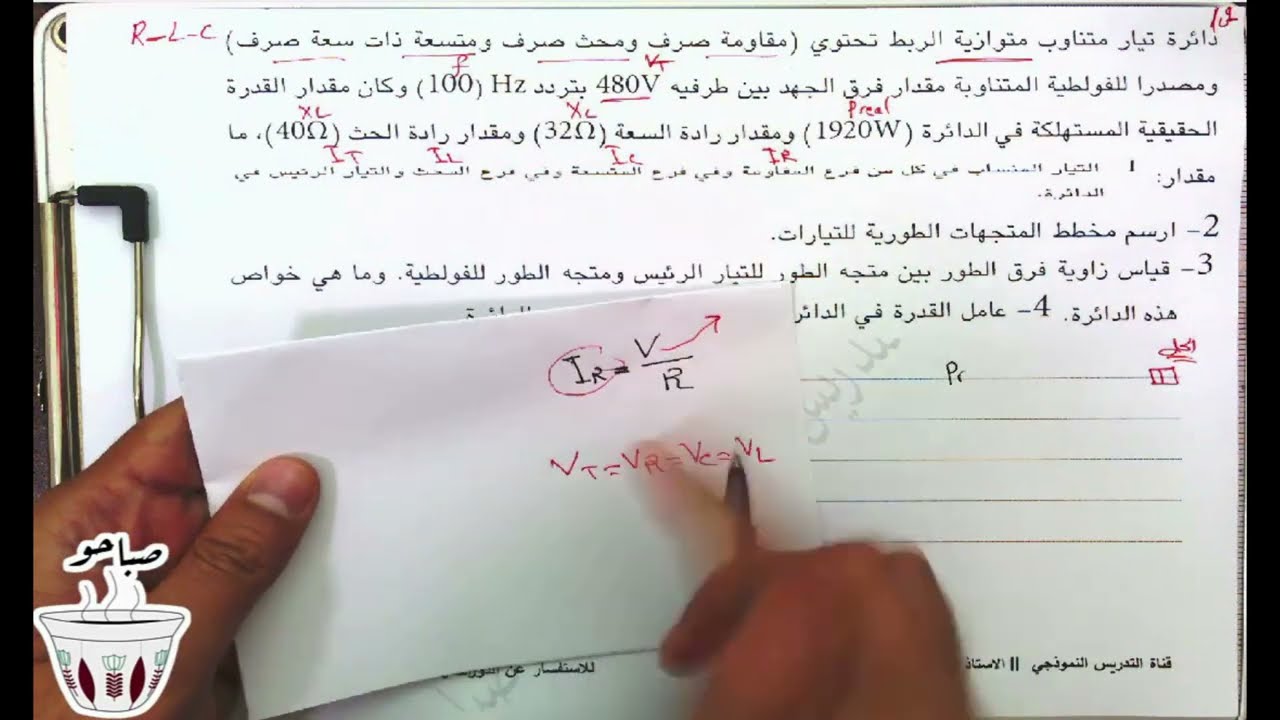 R-L-C
دائرة تيار متناوب متوازية الربط تحتوي (مقاومة صرف ومحث صرف ومتسعة ذات سعة صرف)
f VT
ومصدرا للفولطية المتناوبة مقدار فرق الجهد بين طرفيه 480V بتردد Hz (100) وكان مقدار القدرة
XL XC Preal
الحقيقية المستهلكة في الدائرة (1920W) ومقدار رادة السعة (32Ω) ومقدار رادة الحث (40Ω)، ما
IT IL IC IR
مقدار: 1 التيار المنساب في كل من فرع المقاومة وفي فرع المتسعة وفي فرع المحث والتيار الرئيس في
الدائرة.
2- ارسم مخطط المتجهات الطورية للتيارات.
3- قياس زاوية فرق الطور بين متجه الطور للتيار الرئيس ومتجه الطور للفولطية. وما هي خواص
هذه الدائرة. 4- عامل القدرة في الدائر
الحل
1 Pr
IR = V / R
VT = VR = VC = VL
صباحو
قناة التدريس النموذجي || الاستاذ
للاستفسار عن